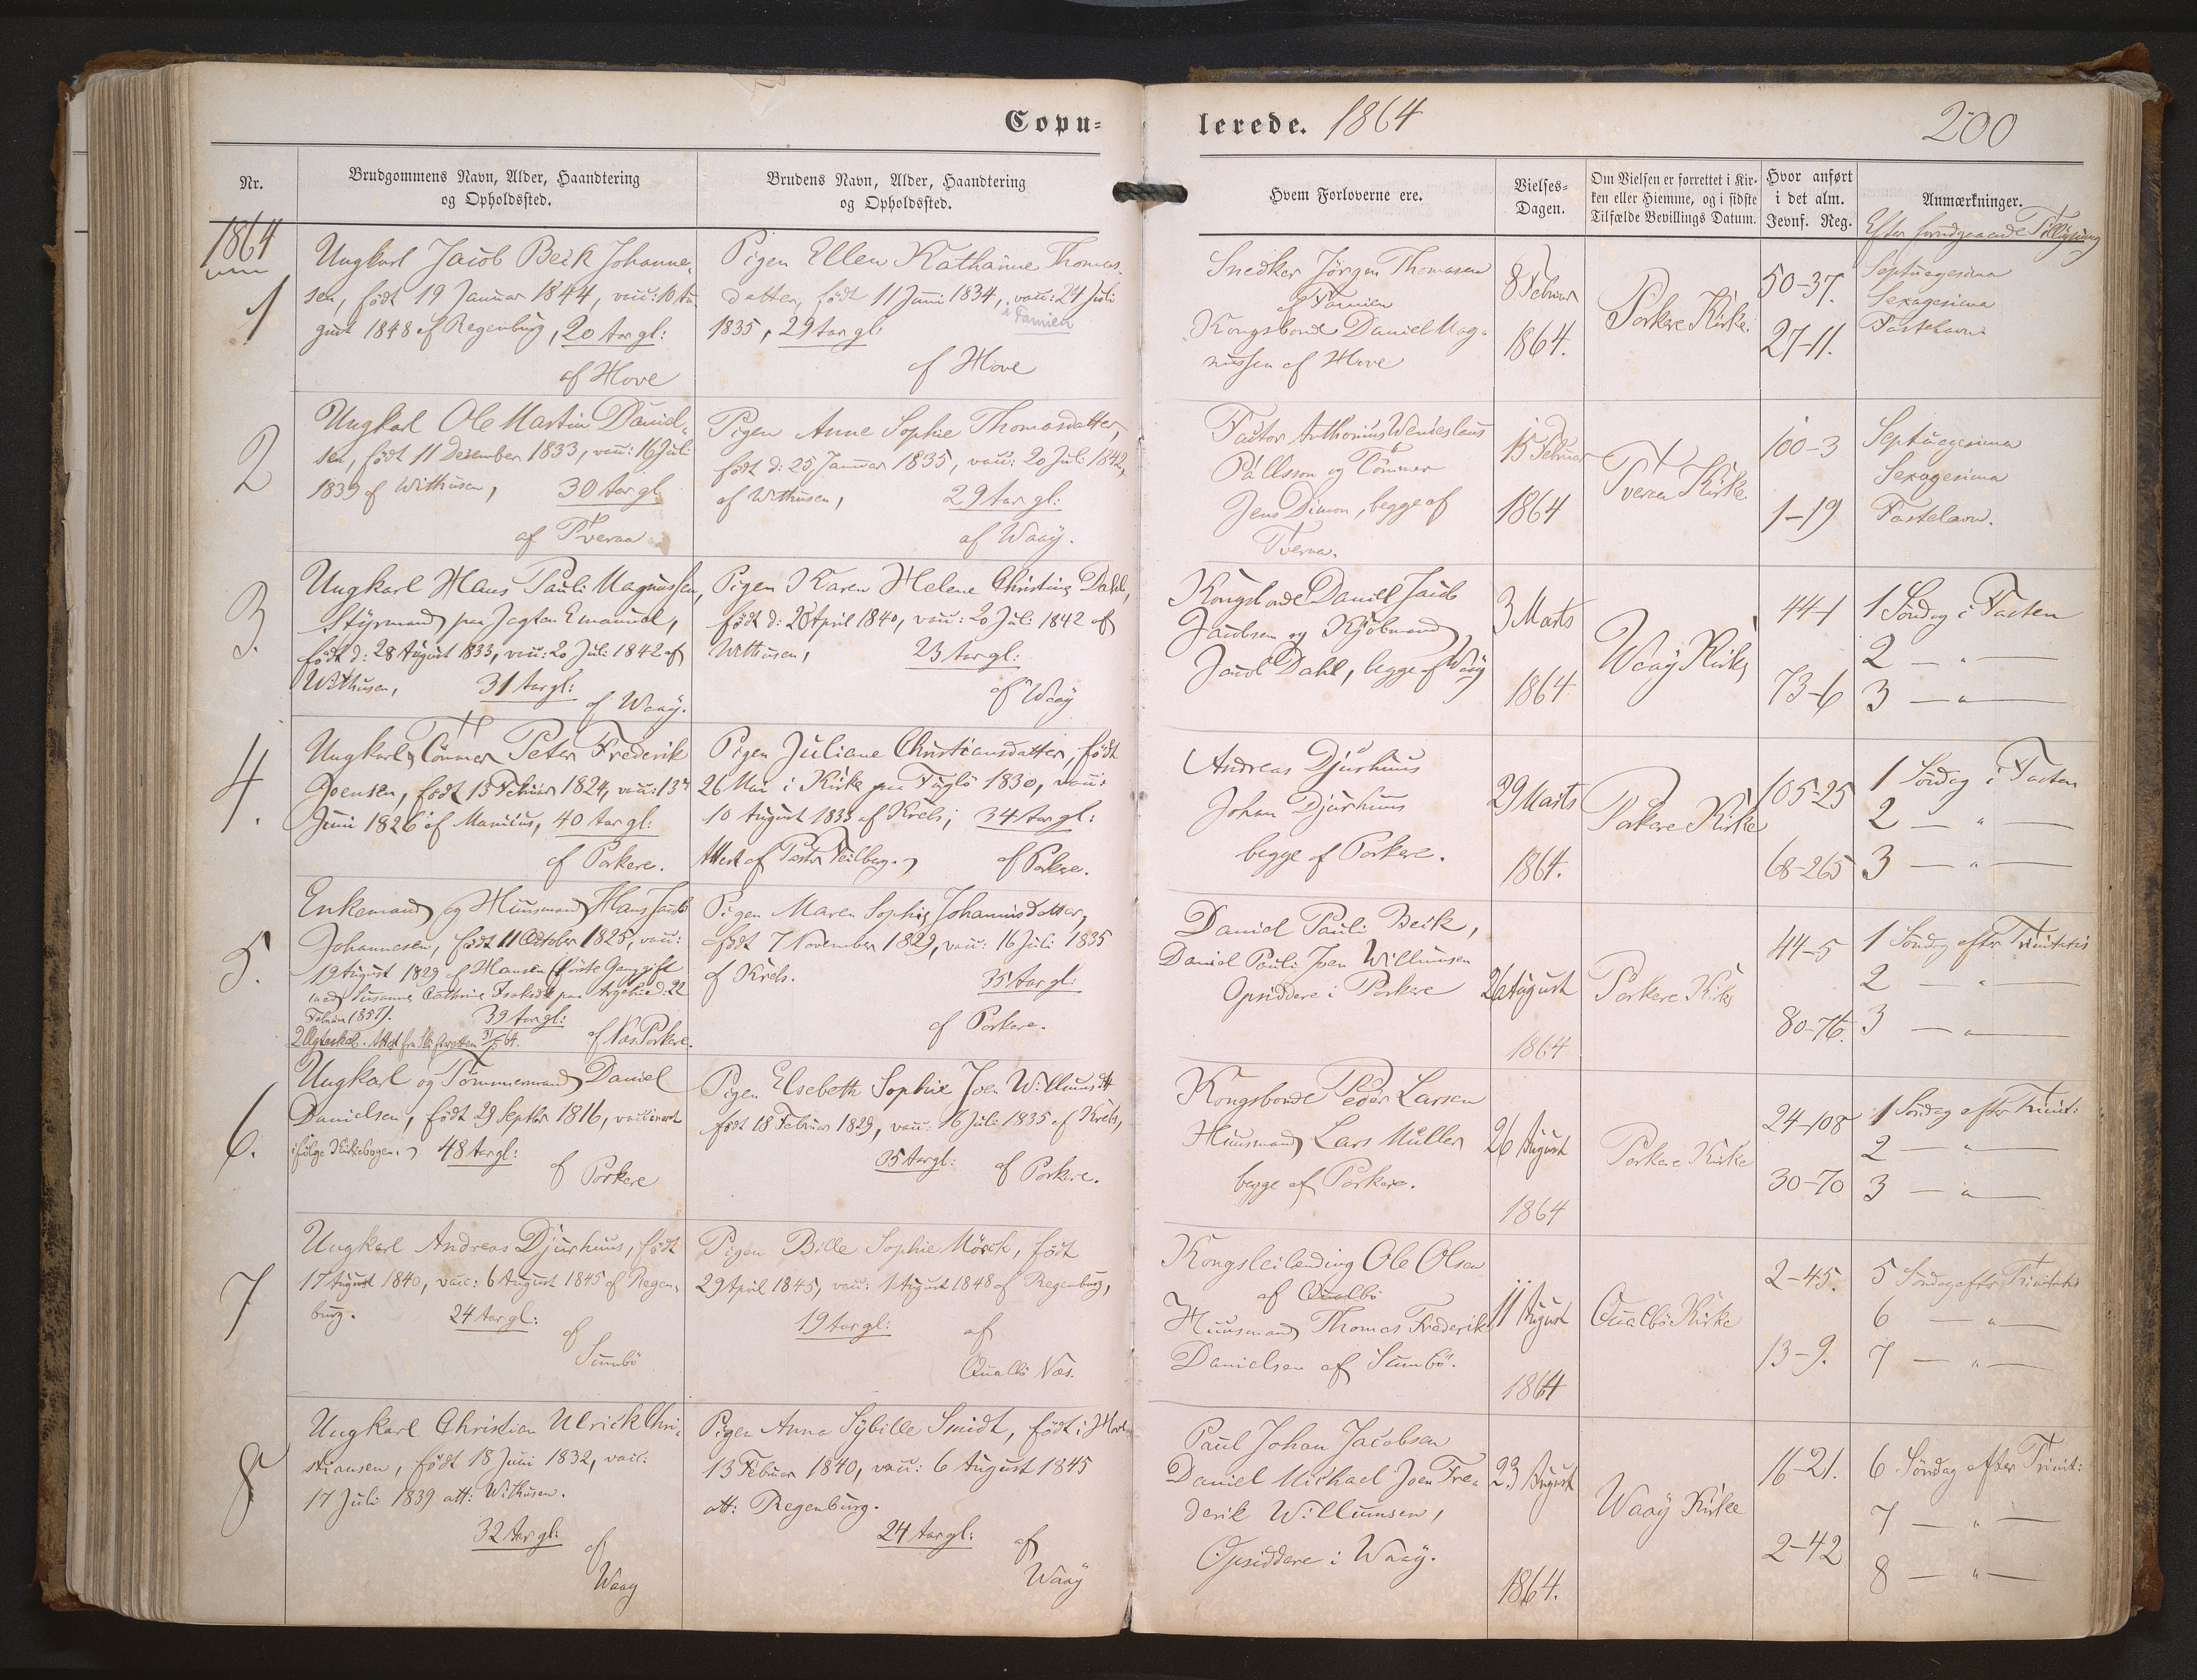 Copu-
lerede. 1864
200
Nr.
Brudgommens Navn, Alder, Haandtering
og Opholdssted.
Brudens Navn, Alder, Haandtering
og Opholdssted.
Hvem Forloverne ere.
Vielses-
Dagen.
Om Vielsen er forrettet i Kir-
ken eller Hiemme, og i sidste
Tilfælde Bevillings Datum.
Hvor anført
i det alm.
Jevnf. Reg.
Anmærkninger.
Efter forudgaaende Tillysning
1864
1
Ungkarl Jacob Beck Johanne-
sen, født 19 Januar 1844, vacc: 10 Au
gust 1848 af Regenburg, 20 Aar gl:
af Hove
Pigen Ellen Kathanne Thomas-
datter, født 11 Juni 1834, vacc: 24 Juli
i Famien
1835, 29 Aar gl:
af Hove
Snedker Jørgen Thomasen
af Famien
Kongsbonde Daniel Mag-
nussen af Hove
8 Februar
1864.
Porkere Kirke.
50-37.
27-11.
Septuagesima
Sexagesima
Fastelavn
2
Ungkarl Ole Martin Daniel-
sen, født 11 December 1833, vacc: 16 Juli
1839 af Withusen, 30 Aar gl
af Tveraa
Pigen Anne Sophie Thomasdatter,
født d: 25 Januar 1835, vacc: 20 Juli 1842,
af Withusen, 29 Aar gl:
af Waaÿ.
Factor Anthonius Wenceslaus
Pállsson og Tømmer
Jens Dimon, begge af
Tveraa.
15 Februar
1864
Tveraa Kirke.
100-3
1-19
Septuagesima
Sexagesima
Fastelavn.
3.
Ungkarl Hans Pauli Magnussen,
Styrmand paa Jagten Emanuel,
født d: 28 August 1833, vacc: 20 Juli 1842 af
Withusen, 31 Aar gl:
af Waaÿ.
Pigen Karen Helene Christine Dahl,
født d: 28 April 1840, vacc: 20 Juli 1842 af
Withusen, 23 Aar gl:
af Waaÿ
Kongsbonde Daniel Jacob
Jacobsen og Kjøbmand,
Jacob Dahl, begge af Waaÿ
3 Marts
1864
Waaÿ Kirke
44-1
73-6
1 Søndag i Fasten
2 — " —
3 — " —
4.
Ungkarl, Tømmer Peter Frederik
Joensen, født 15 Februar 1824, vacc: 13de
Juni 1826 af Manicus, 40 Aar gl:
af Porkere.
Pigen Juliane Christiansdatter, født
26 Mai i Kirke paa Fuglø 1830, vacc:
10 August 1833 af Krels; 34 Aar gl:
Attest af Pastor Feilberg.
af Porkere.
Andreas Djurhuus
Johan Djurhuus
begge af Porkere.
29 Marts
1864.
Porkere Kirke
105-25
68-265
1 Søndag i Fasten
2 — " —
3 — " —
5.
Enkemand og Huusmand Hans Jacob
Johannesen, født 11 October 1825, vacc:
19 August 1829 af Hansen (første Gang gift
med Susanne Cathrine Isaksdt paa d: 22
Februar 1857). 39 Aar gl:
2 Ægteskab. Attest fra Skifteretten 64.
af Næs Porkere.
Pigen Maren Sophie Johannisdatter,
født 7 November 1829, vacc: 16 Juli 1835
af Krels. 35 Aar gl:
af Porkere.
Daniel Pauli Beck,
Daniel Pauli Joen Willumsen
Opsiddere i Porkere
26 August
1864
Porkere Kirke
44-5
80-76.
1 Søndag efter Trinitatis
2 — " —
3 — " —
6.
Ungkarl og Tømmermand Daniel
Danielsen, født 29 Septbr 1816, vaccineret
ifølge Kirkebogen. 48 Aar gl:
af Porkere
Pigen Elsebeth Sophie Joen Willumsdt
født 18 Februar 1829, vacc: 16 Juli 1835 af Krels,
35 Aar gl: af Porkere.
Kongsbonde Peder Larsen
Huusmand Lars Müller
begge af Porkere.
26 August
1864
Porkere Kirke
24-108
30-70
1 Søndag efter Trinit:
2 — " —
3 — " —
7
Ungkarl Andreas Djurhuus, født
17 August 1840, vacc: 6 August 1845 af Regen-
burg. 24 Aar gl:
af
Sumbø
Pigen Bille Sophie Mørch, født
29 April 1845, vacc: 1 August 1848 af Regenburg,
19 Aar gl:
af
Qualbø Næs.
Kongsleilending Ole Olsen
af Qualbø
Huusmand Thomas Frederik
Danielsen af Sumbø.
11 August
1864
Qualbø Kirke
2-45.
13-9.
5 Søndag efter Trinitatis
6 — " —
7 — " —
8
Ungkarl Christian Ulrick Chri-
stiansen, født 18 Juni 1832, vacc:
17 Juli 1839 att: Withusen.
32 Aar gl:
af
Waaÿ
Pigen Anna Sybille Smidt, født i
13 Februar 1840, vacc: 6 August 1845
att: Regenburg.
24 Aar gl:
af
Waaÿ
Paul Johan Jacobsen
Daniel Michael Joen Fre-
derik Willumsen,
Opsiddere i Waaÿ.
23 August
1864.
Waaÿ Kirke
16-21.
2-42
6 Søndag efter Trinit:
7 — " —
8 — " —